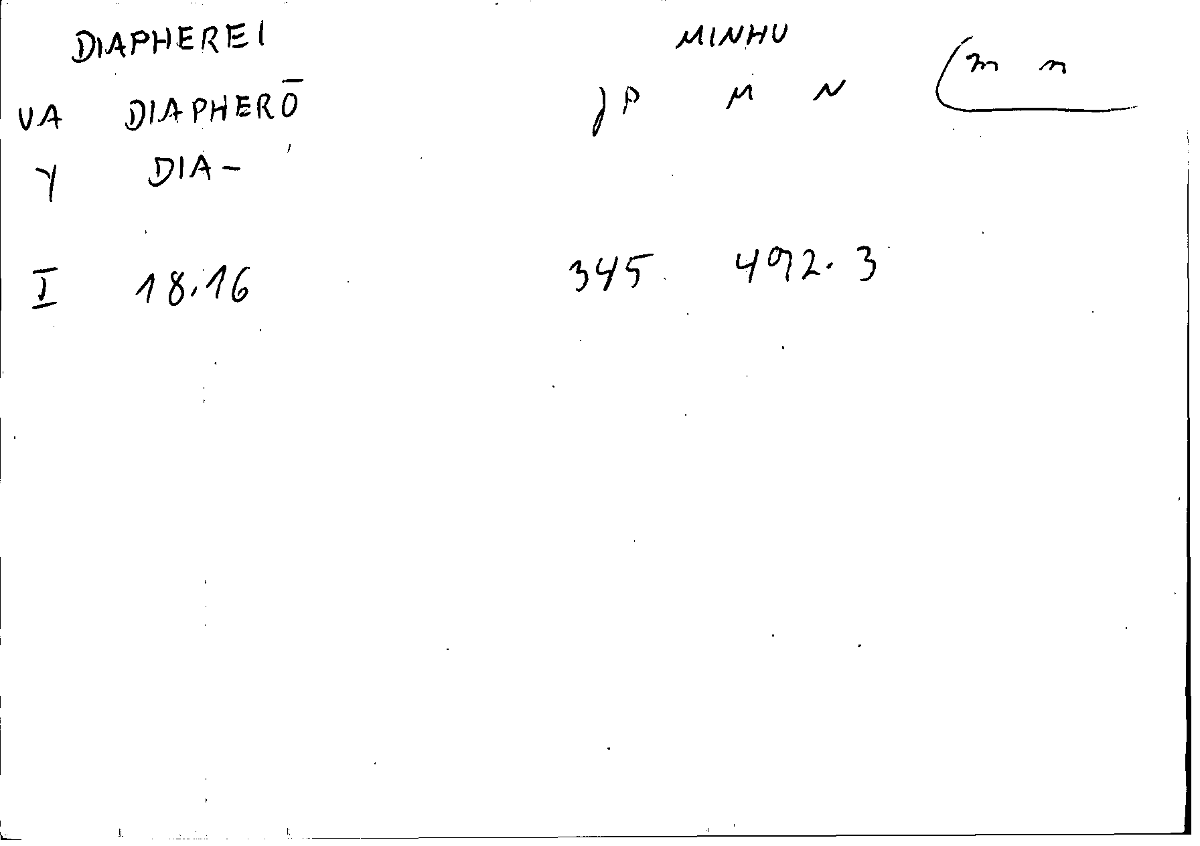 DIAPHEREI MINHU
VA DIAPHERŌ JP M N (m n
Y DIA-
I 18.16 345 492.3